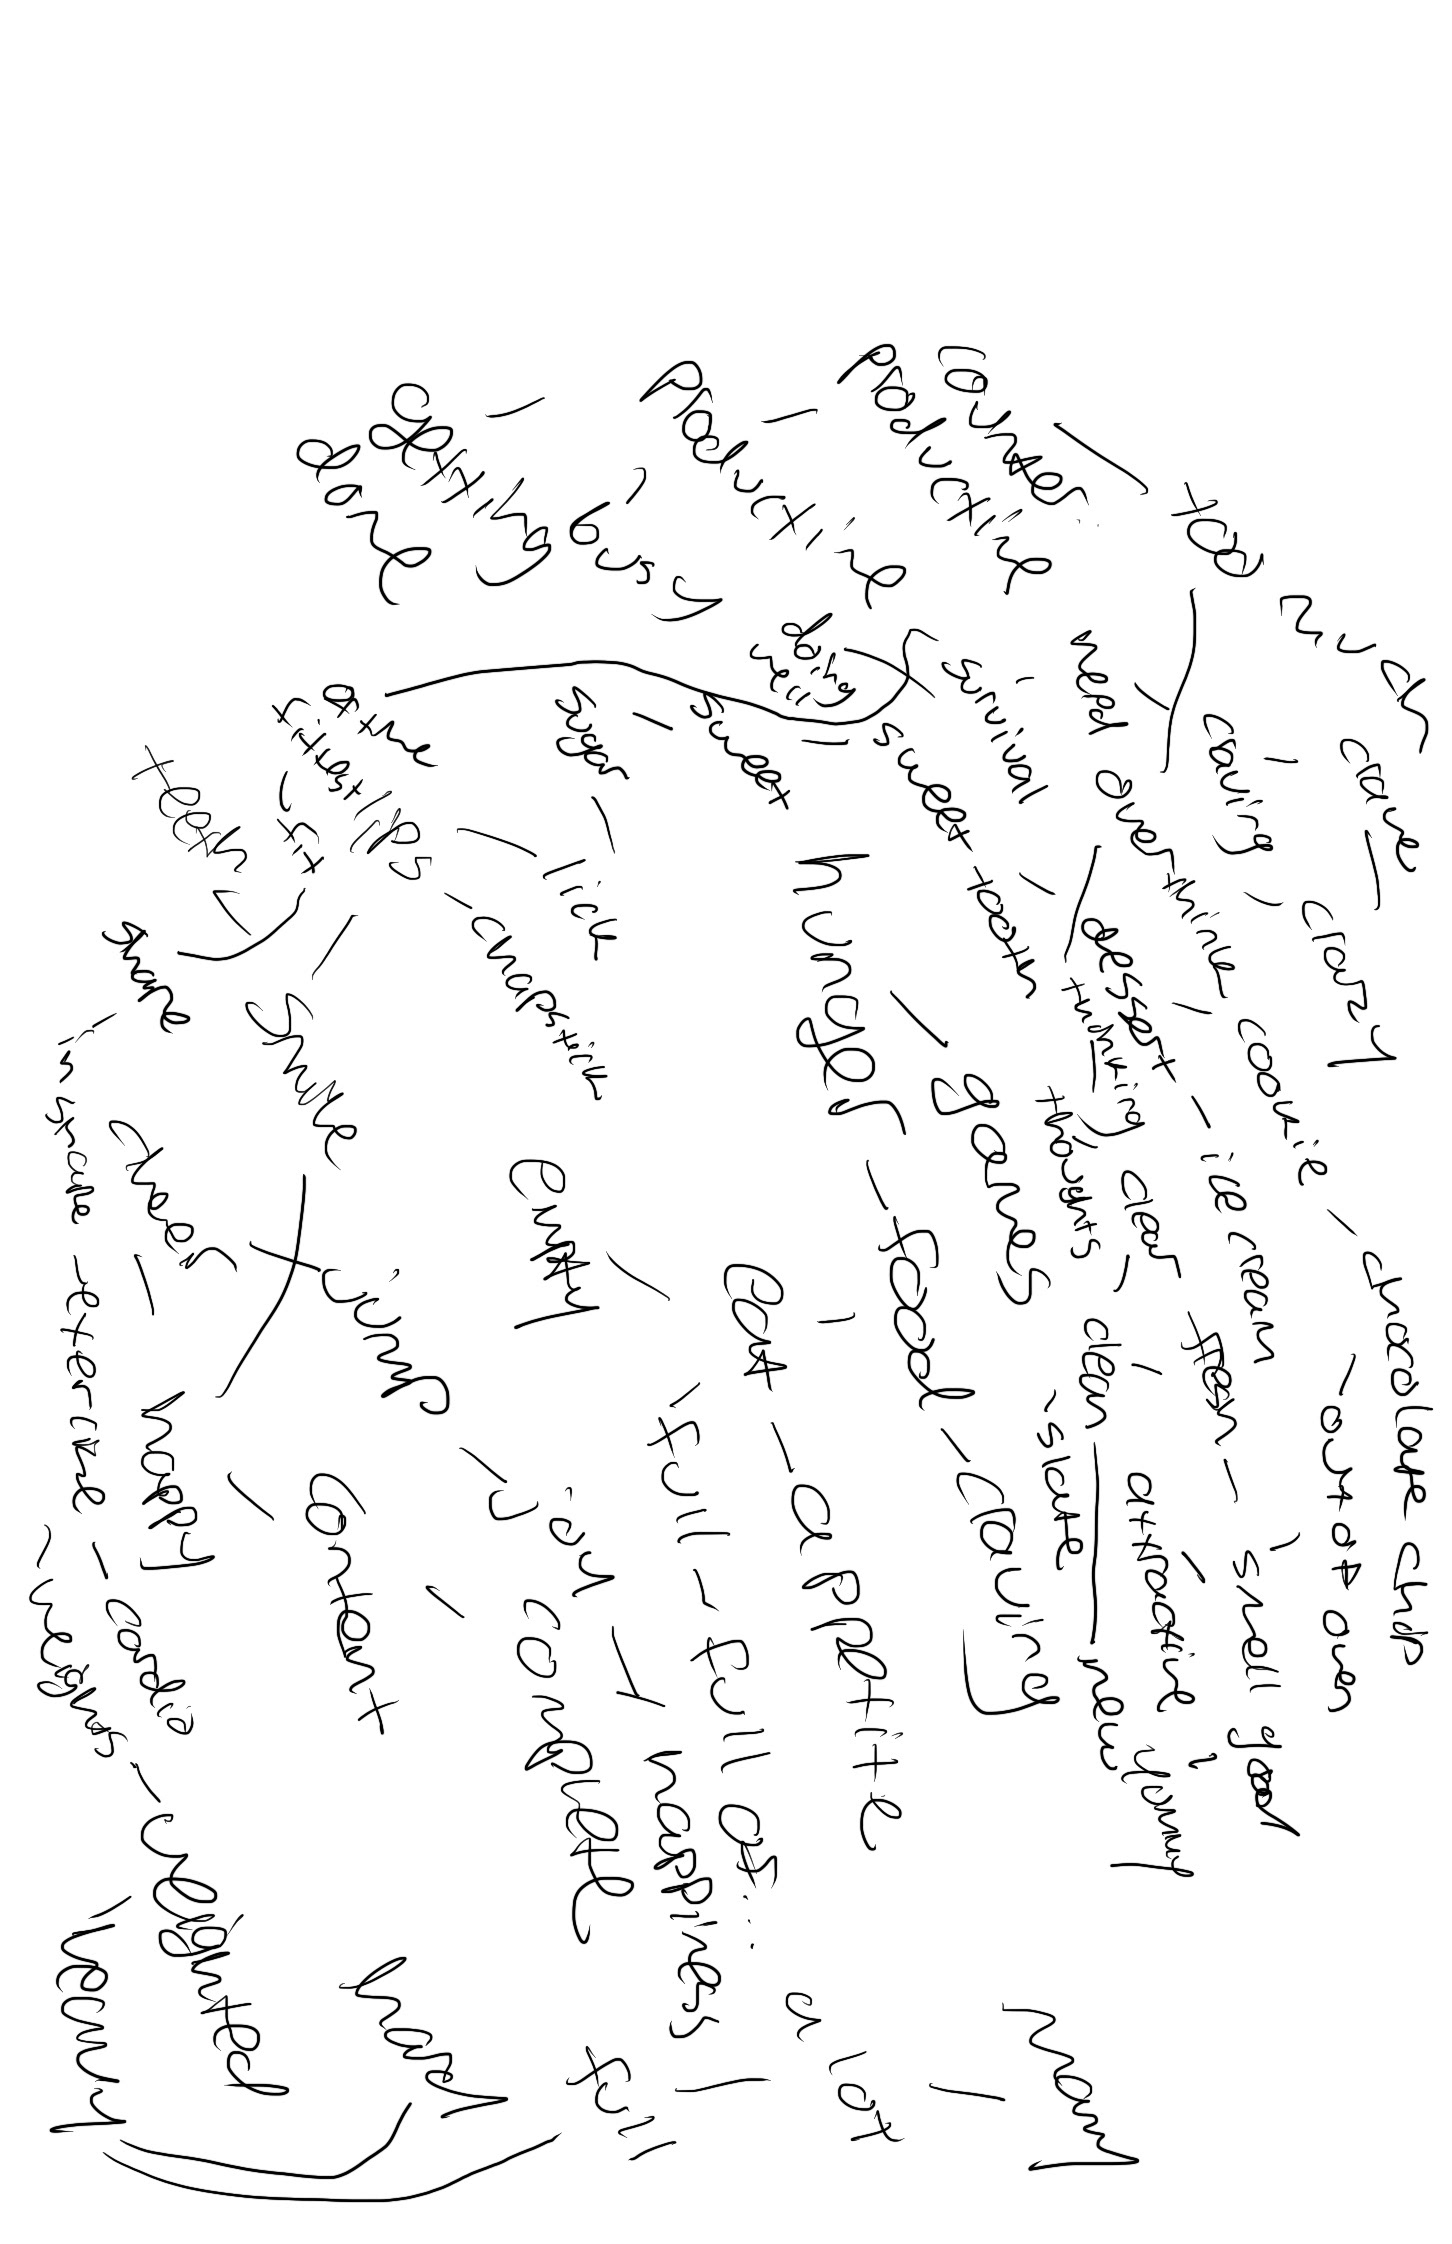 counter
productive
productive
getting
done
busy
doing
well
too much
survival
need
craving
crave
crazy
overthink
thinking
thoughts
clear
clean
slate
fresh
smell good
attractive
new
yummy
cookie
chocolate chip
out of oven
dessert
ice cream
sweet tooth
sweet
sugar
lick
lips
chapstick
teeth
smile
of the
fittest
fit
shape
in shape
exercise
cardio
weights
weighted
heavy
heart
full
a lot
many
cheer
happy
jump
content
joy
complete
happiness
hunger
games
food
craving
eat
empty
appetite
full
full of...